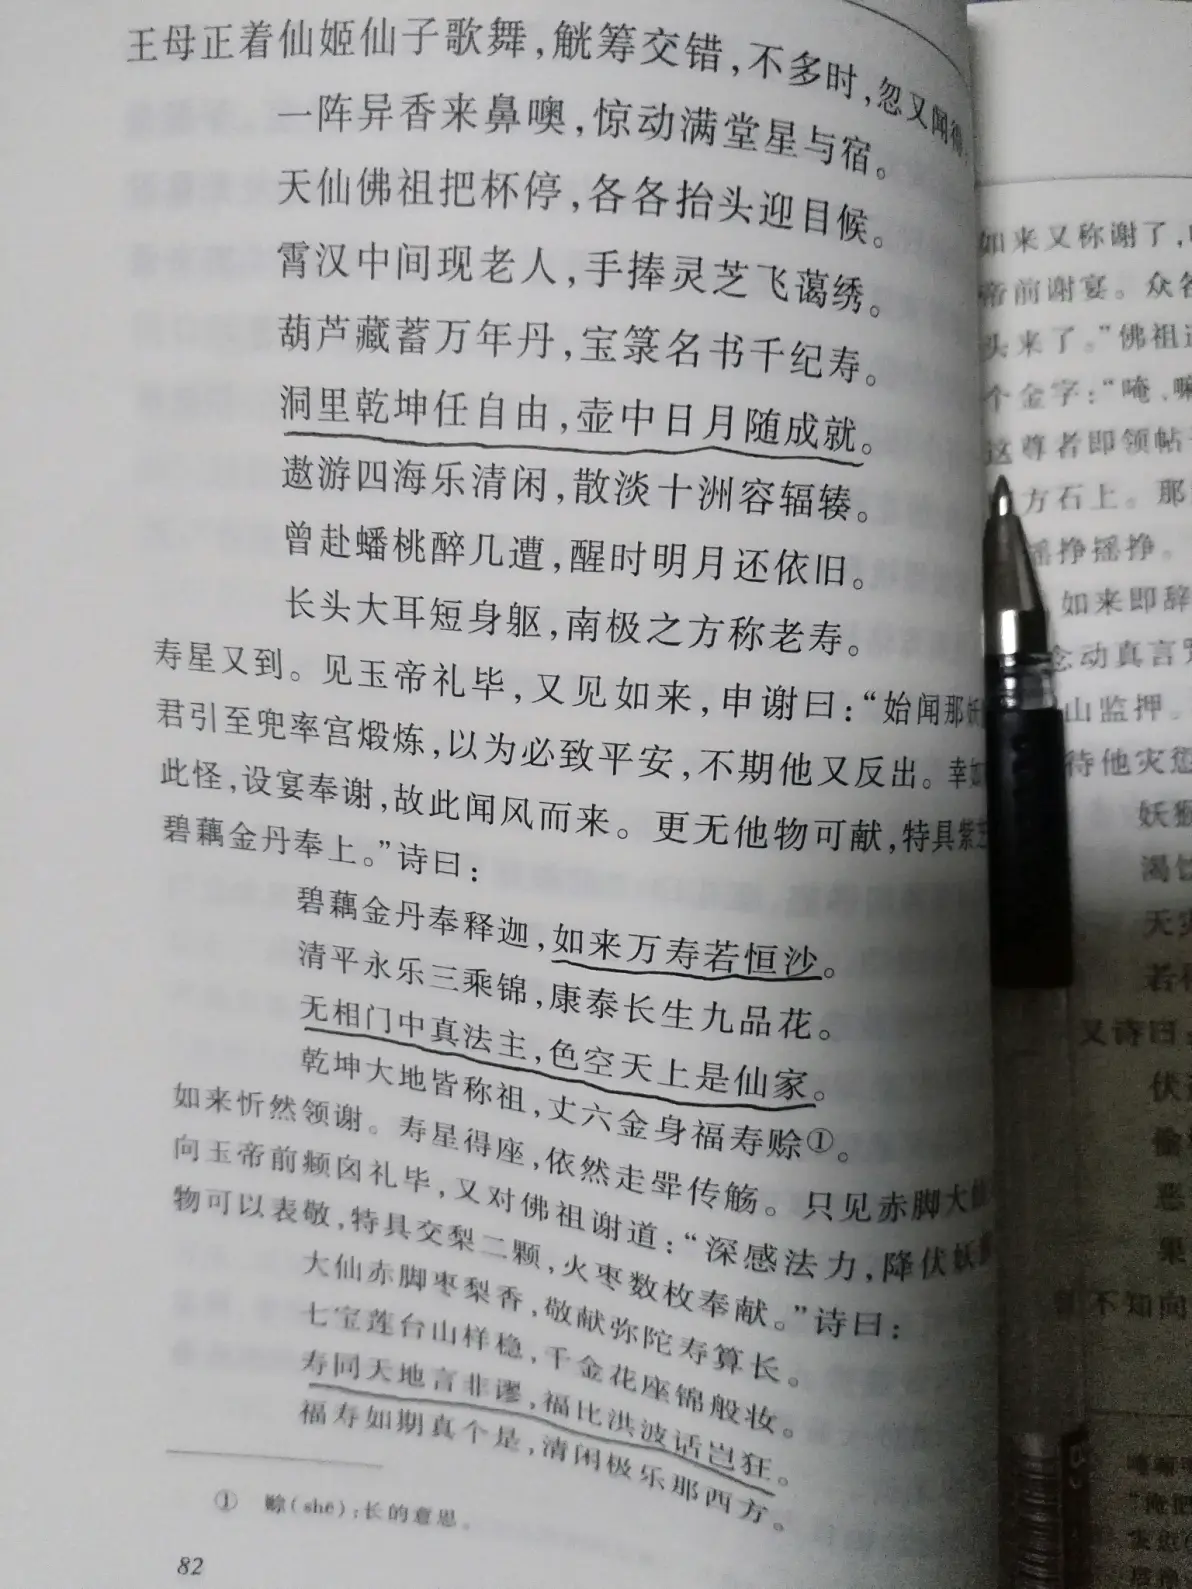 王母正着仙姬仙子歌舞，觥筹交错，不多时，忽又闻得
一阵异香来鼻噢，惊动满堂星与宿。
天仙佛祖把杯停，各各抬头迎目候。
霄汉中间现老人，手捧灵芝飞蔼绣。
葫芦藏蓄万年丹，宝箓名书千纪寿。
洞里乾坤任自由，壶中日月随成就。
遨游四海乐清闲，散淡十洲容辐辏。
曾赴蟠桃醉几遭，醒时明月还依旧。
长头大耳短身躯，南极之方称老寿。
寿星又到。见玉帝礼毕，又见如来，申谢曰：“始闻那妖
君引至兜率宫煅炼，以为必致平安，不期他又反出。幸如
此怪，设宴奉谢，故此闻风而来。更无他物可献，特具紫芝
碧藕金丹奉上。”诗曰：
碧藕金丹奉释迦，如来万寿若恒沙。
清平永乐三乘锦，康泰长生九品花。
无相门中真法主，色空天上是仙家。
乾坤大地皆称祖，丈六金身福寿赊①。
如来忻然领谢。寿星得座，依然走斝传觞。只见赤脚大仙
向玉帝前頫囟礼毕，又对佛祖谢道：“深感法力，降伏妖
物可以表敬，特具交梨二颗，火枣数枚奉献。”诗曰：
大仙赤脚枣梨香，敬献弥陀寿算长。
七宝莲台山样稳，千金花座锦般妆。
寿同天地言非谬，福比洪波话岂狂。
福寿如期真个是，清闲极乐那西方。
① 赊(shē)：长的意思。
82
如来又称谢了，
帝前谢宴。众各
头来了。”佛祖道
个金字：“唵、嘛
这尊者即领帖
方石上。那
摇挣摇挣。
如来即辞
念动真言咒
山监押。
待他灾愆
妖猴
渴饮
天灾
若得
又诗曰：
伏
偷
恶
果
不知向